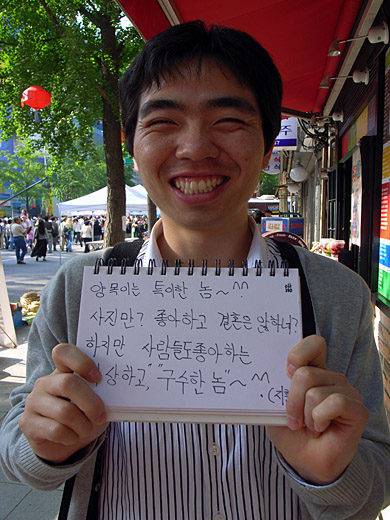 양목이는 특이한 놈~^^
사진만? 좋아하고 결혼은 않하녀?
하지만 사람들도좋아하는
상하고," "구수한 놈"~^^.